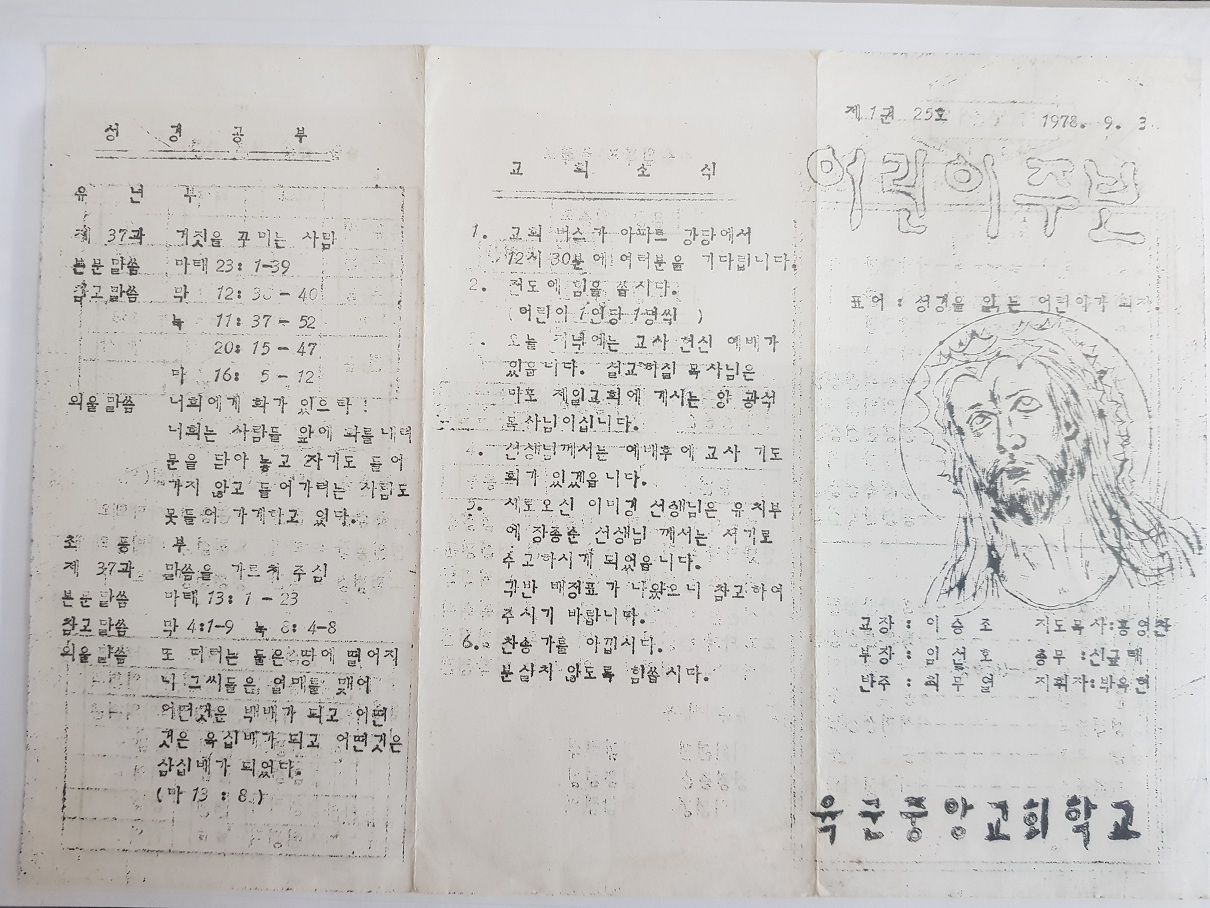 성 경 공 부
유 년 부
제 37과 거짓을 꾸미는 사람
본문말씀 마태 23: 1-39
참고말씀 막 12: 38-40
눅 11: 37-52
20: 15-47
마 16: 5-12
외울말씀 너희에게 화가 있으라!
너희는 사람들 앞에 하늘
문을 닫아 놓고 자기도 들어
가지 않고 들어가려는 사람도
못들어 가게하고 있다.
초 등 부
제 37과 말씀을 가르쳐 주심
본문말씀 마태 13: 1-23
참고말씀 막 4:1-9 눅 8: 4-8
외울말씀 또 더러는 좋은 땅에 떨어지
니 그씨들은 열매를 맺어
어떤것은 백배가 되고 어떤
것은 육십배가 되고 어떤것은
삼십배가 되었다.
(마 13 : 8)
교 회 소 식
1. 교회 버스가 아파트 강당에서
12시 30분에 여러분을 기다립니다.
2. 전도에 힘을 씁시다.
(어린이 1인당 1명씩 )
. 오늘 저녁에는 교사 헌신 예배가
있읍니다. 설교하실 목사님은
마포 제일교회에 계시는 양 광석
목사님이십니다.
4. 선생님께서는 예배후에 교사 기도
회가 있겠읍니다.
5. 새로오신 이미경 선생님은 유치부
에 장종춘 선생님 께서는 서기로
수고하시게 되었읍니다.
각반 배정표가 나왔으니 참고하여
주시기 바랍니다.
6. 찬송가를 아낍시다.
분실치 않도록 힘씁시다.
제1권 25호 1978. 9. 3
어린이주보
표어 : 성경을 읽는 어린이가 되자.
교장 : 이 승 조 지도목사:홍영찬
부장 : 임 선 호 총무 :신규태
반주 : 최 무 열 지휘자:박옥현
육군중앙교회학교